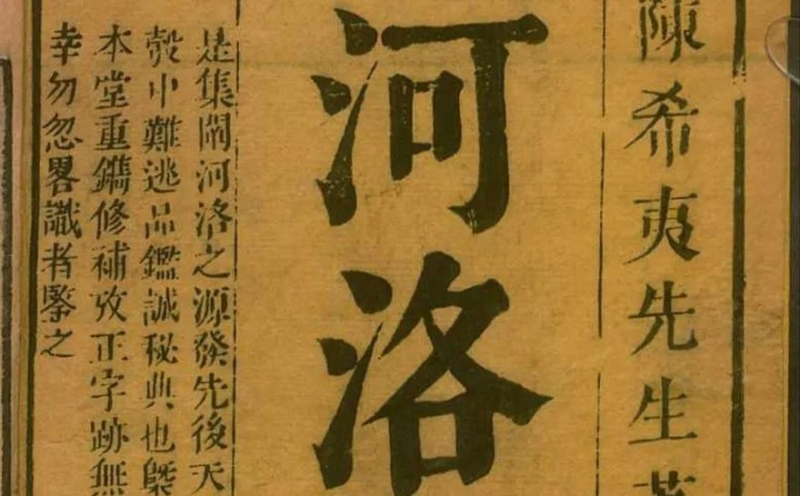 陳希夷先生著
河洛
是集闡河洛之源發先後天
彀中難逃品鑑誠秘典也槩
本堂重鐫修補攷正字跡無
幸勿忽畧識者鑒之